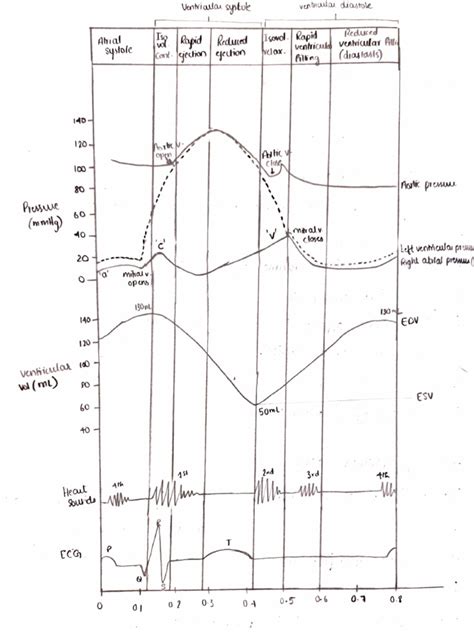 Ventricular systole
ventricular diastole
Atrial systole
Iso vol cont.
Rapid ejection
Reduced ejection
Isovol. relax.
Rapid ventricular filling
Reduced ventricular filling (diastasis)
140
120
100
80
60
40
20
0
Pressure (mmHg)
Aortic v. open
Aortic v. close
Aortic pressure
mitral v. closes
Left ventricular pressure
Right atrial pressure
'a'
'c'
'v'
mitral v. opens
130mL
130
EDV
140
120
100
80
60
40
ventricular vol (mL)
50mL
ESV
Heart sounds
4th
1st
2nd
3rd
4th
ECG
P
Q
R
S
T
0
0.1
0.2
0.3
0.4
0.5
0.6
0.7
0.8